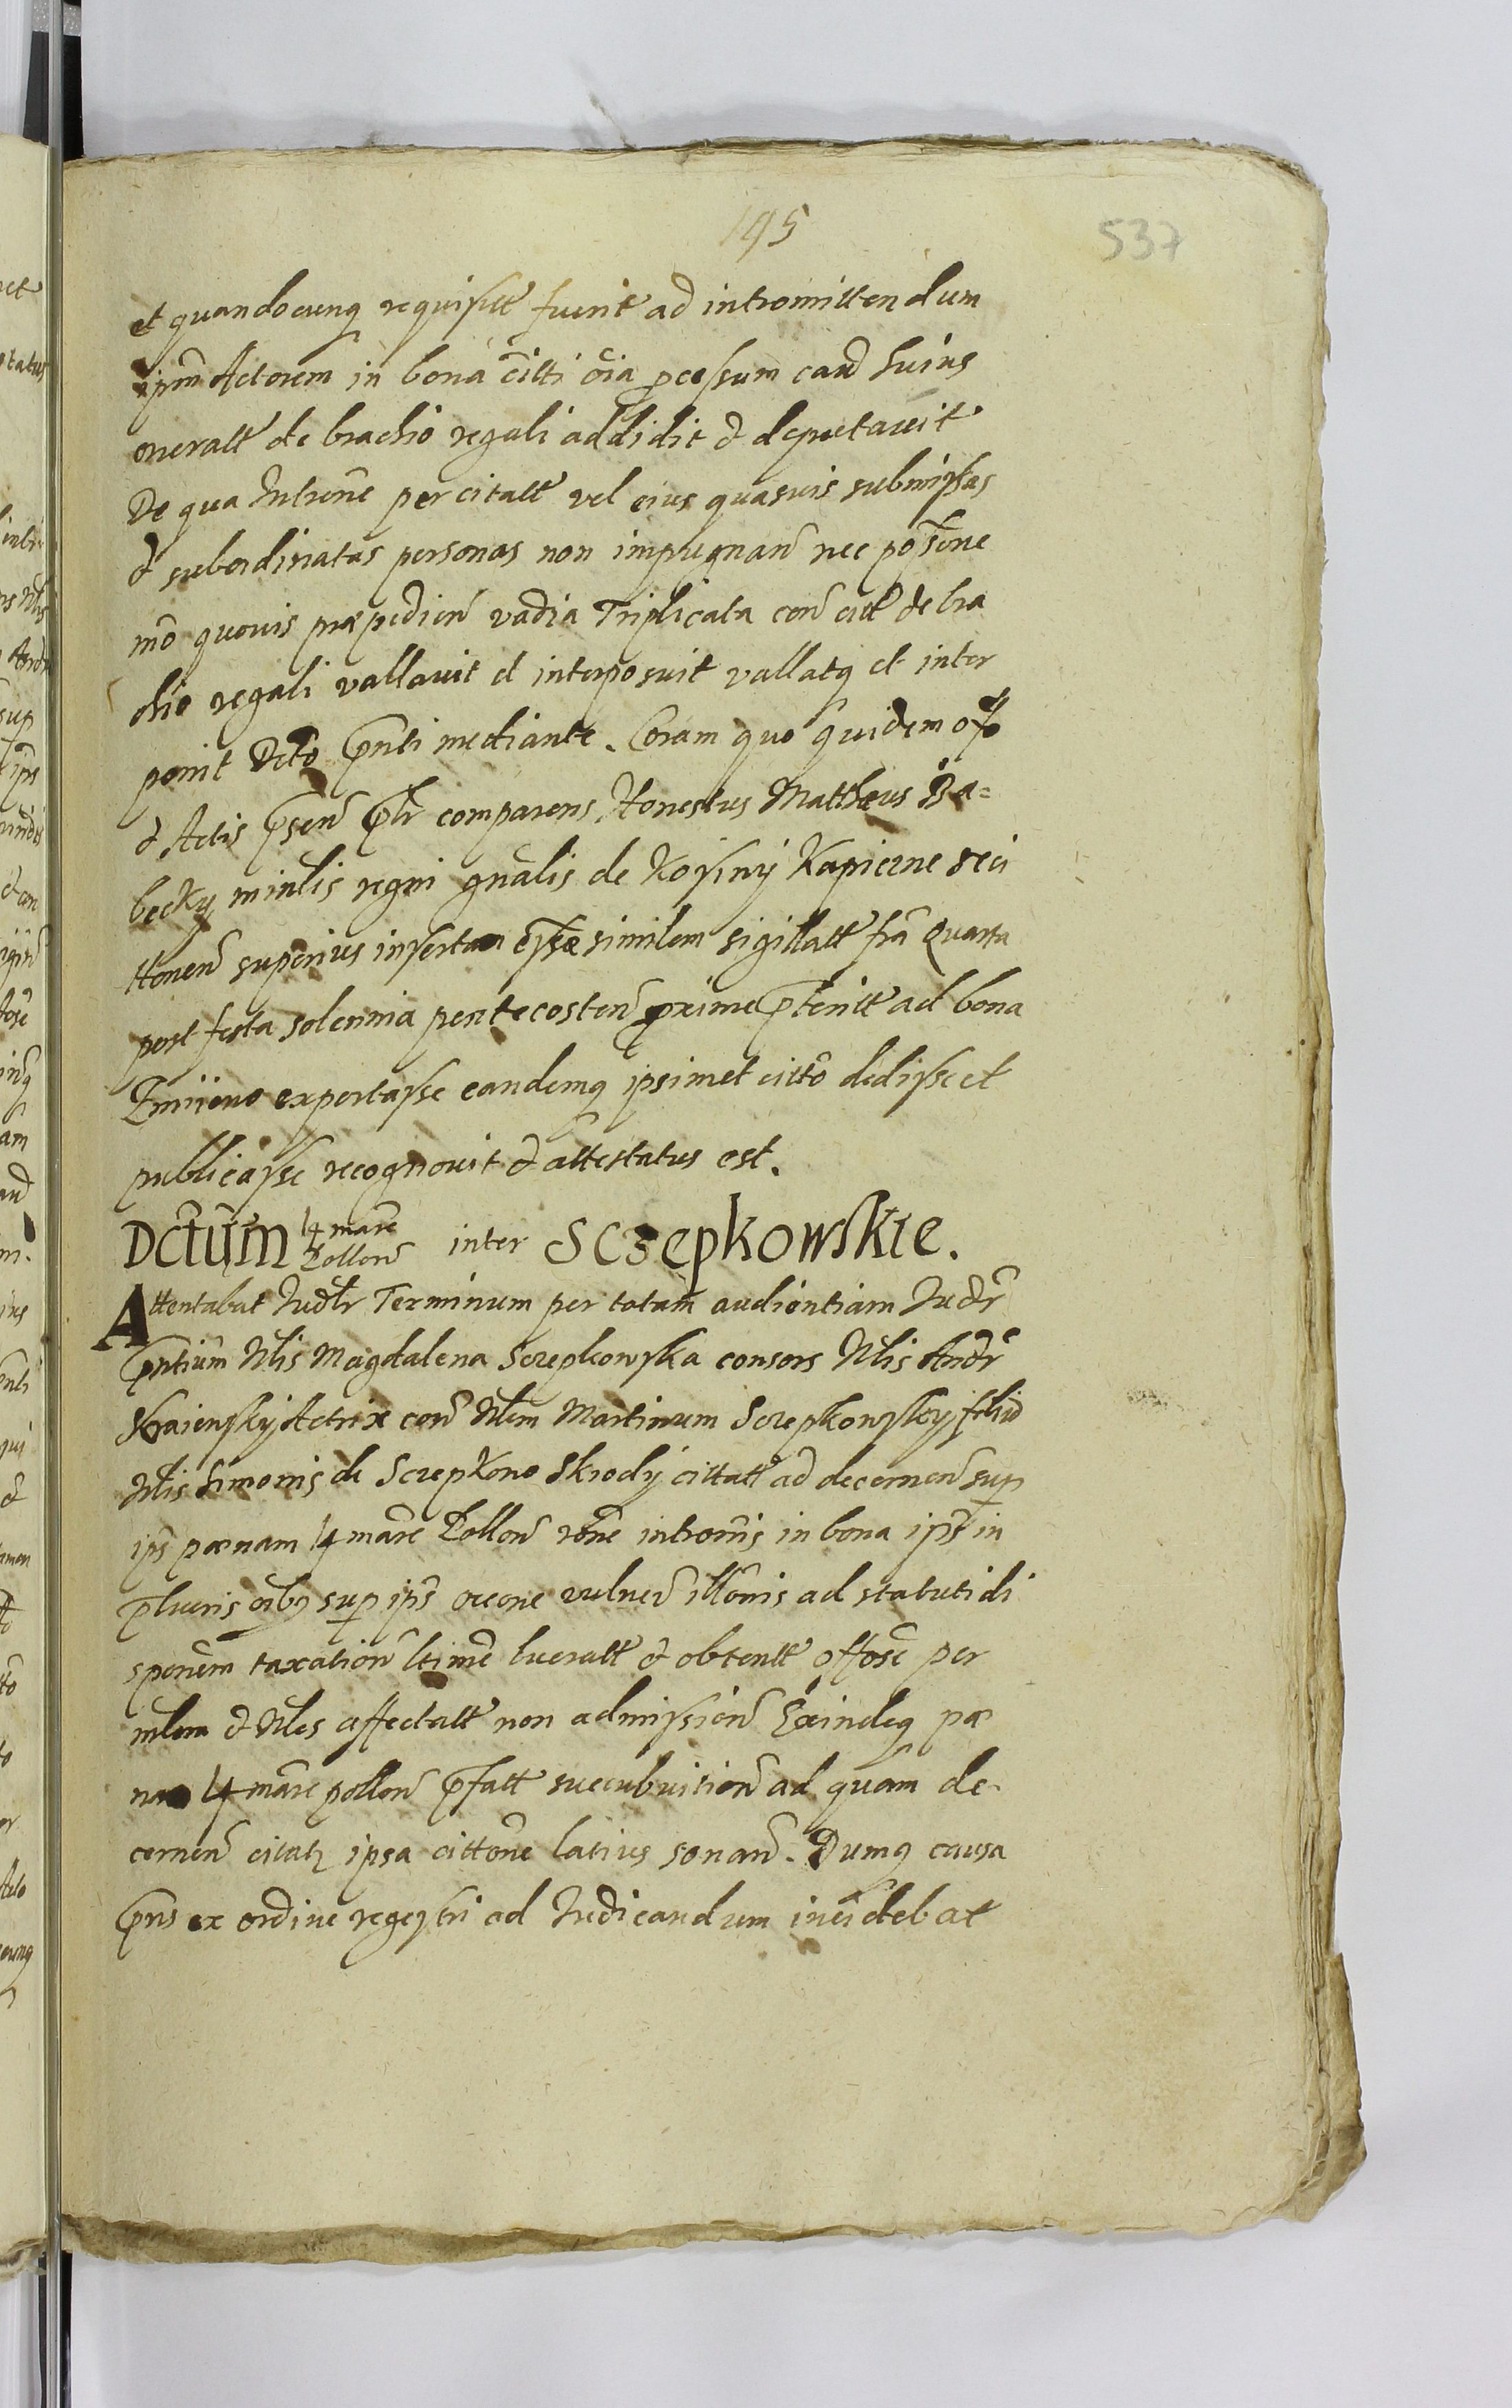 195
537
et quandocunq requisitt fuerit ad intromittendum
ipm Actorem in bona citti oia pcessum caus huius
oneratt de brachio regali addidit & deputauit
De qua Introne per citatt vel eius quasuis submissas
& subordinatas personas non impugnan nec possione
mo quouis præpedien vadia Triplicata con citt de bra
chio regali vallauit et interposuit vallatq et inter
ponit Dcto pnti mediante. Coram quo quidem offo
& Actis psen pltr comparens Honestus Mattheus Ba=
becky minlis regni gnalis de Kosiny Kapiczne seci
ttonen superius insertam esse similem sigillatt fra Quarta
post festa solennia pentecosten proxime pteritt ad bona
exportasse eandemq ipsimet citto dedisse et
publicasse recognouit & attestatus est.
Dctum 14 marc Pollon inter Sczepkowskie.
Attentabat Iudltr Terminum per totam audientiam Iudr
pntium Nlis Magdalena Sczepkowska consors Nlis Andr
Actrix con Nlem Martinum Sczepkowsky filiu
Nlis Simonis de Sczepkowo Skrody cittatt ad decernen sup
ips pœnam 14 marc Pollon rone intromis in bona ips in
plucris oibq sup ips occone vulner illonis ad statuti di
sponem taxation ltime lucratt & obtentt offose per
mlem & Nles affectatt non admission Exindeq pæ
nam 14 marc pollon pfatt succubuition ad quam de
cernen citatq ipsa cittone latius sonan. Dumq causa
pns ex ordine regestri ad Iudicandum incidebat